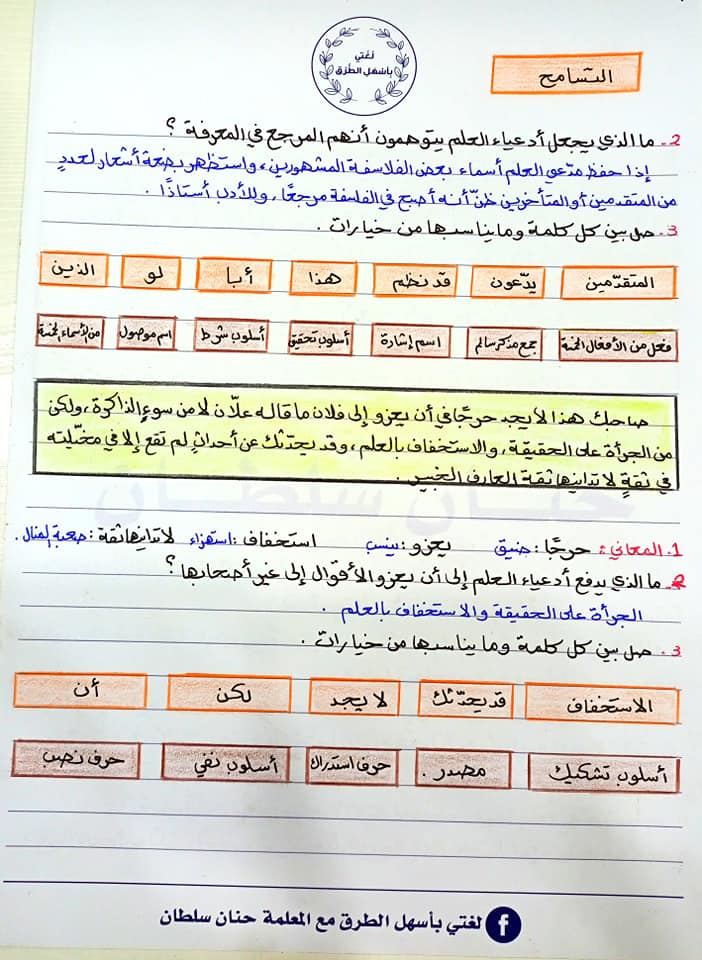 لغتي
بأسهل الطرق
التسامح
2- ما الذي يجعل أدعياء العلم يتوهمون أنهم المرجع في المعرفة ؟
إذا حفظ مدّعي العلم أسماء بعض الفلاسفة المشهورين، واستظهر بضعة أشعار لعددٍ
من المتقدمين أو المتأخرين ظنّ أنه أصبح في الفلسفة مرجعًا، وللأدب أستاذًا .
3- صل بين كل كلمة وما يناسبها من خيارات .
المتقدّمين يدّعون قد نظم هذا أبا لو الذين
فعل من الأفعال الخمسة جمع مذكر سالم اسم إشارة أسلوب تحقيق أسلوب شرط اسم موصول من الأسماء الخمسة
صاحبك هذا لا يجد حرجًا في أن يعزو إلى فلان ما قاله علّان لا من سوءِ الذاكرة، ولكن
من الجرأة على الحقيقة، والاستخفاف بالعلم، وقد يحدّثك عن أحداثٍ لم تقع إلا في مخيّلته
في ثقةٍ لا تدانيها ثقة العارف الخبير .
حنان سلطان
1. المعاني: حرجًا: ضيق يعزو: ينسب استخفاف: استهزاء لا تدانيها ثقة: صعبة المنال .
2- ما الذي يدفع أدعياء العلم إلى أن يعزو الأقوال إلى غير أصحابها ؟
الجرأة على الحقيقة والاستخفاف بالعلم .
3. صل بين كل كلمة وما يناسبها من خيارات .
الاستخفاف قد يحدّثك لا يجد لكن أن
أسلوب تشكيك مصدر . حرف استدراك أسلوب نفي حرف نصب
لغتي بأسهل الطرق مع المعلمة حنان سلطان